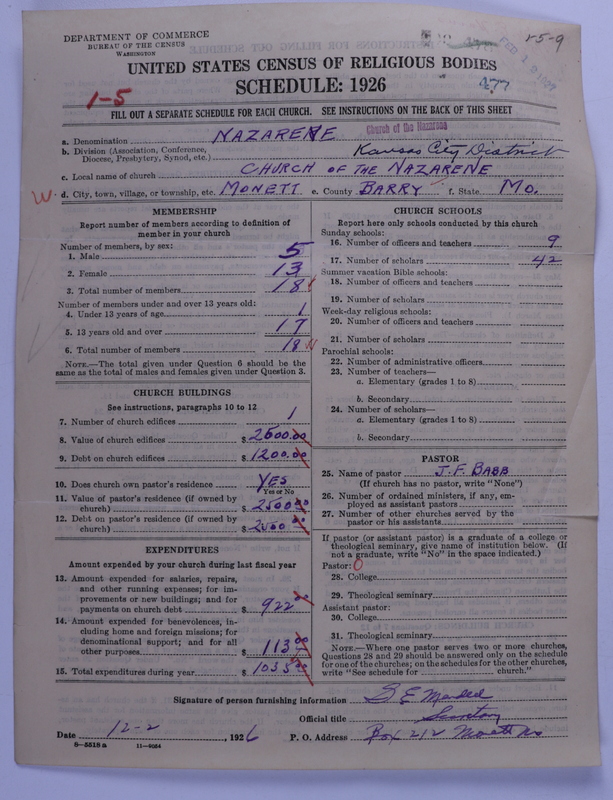 DEPARTMENT OF COMMERCE
BUREAU OF THE CENSUS
WASHINGTON
FEB 1 9 1927
15-9
UNITED STATES CENSUS OF RELIGIOUS BODIES
SCHEDULE: 1926
477
1-5
FILL OUT A SEPARATE SCHEDULE FOR EACH CHURCH. SEE INSTRUCTIONS ON THE BACK OF THIS SHEET
Church of the Nazarene
a. Denomination NAZARENE
b. Division (Association, Conference,
Diocese, Presbytery, Synod, etc.) Kansas City District
c. Local name of church CHURCH OF THE NAZARENE
W. d. City, town, village, or township, etc. MONETT e. County BARRY f. State MO.
MEMBERSHIP
Report number of members according to definition of
member in your church
Number of members, by sex:
1. Male 5
2. Female 13
3. Total number of members 18
Number of members under and over 13 years old:
4. Under 13 years of age 1
5. 13 years old and over 17
6. Total number of members 18
NOTE.—The total given under Question 6 should be the
same as the total of males and females given under Question 3.
CHURCH BUILDINGS
See instructions, paragraphs 10 to 12
7. Number of church edifices 1
8. Value of church edifices $2500.00
9. Debt on church edifices $1200.00
10. Does church own pastor's residence YES
Yes or No
11. Value of pastor's residence (if owned by
church) $2500 00
12. Debt on pastor's residence (if owned by
church) $2000 00
EXPENDITURES
Amount expended by your church during last fiscal year
13. Amount expended for salaries, repairs,
and other running expenses; for im-
provements or new buildings; and for
payments on church debt $922 00
14. Amount expended for benevolences, in-
cluding home and foreign missions; for
denominational support; and for all
other purposes $113 00
15. Total expenditures during year $1035 00
CHURCH SCHOOLS
Report here only schools conducted by this church
Sunday schools:
16. Number of officers and teachers 9
17. Number of scholars 42
Summer vacation Bible schools:
18. Number of officers and teachers
19. Number of scholars
Week-day religious schools:
20. Number of officers and teachers
21. Number of scholars
Parochial schools:
22. Number of administrative officers
23. Number of teachers—
a. Elementary (grades 1 to 8)
b. Secondary
24. Number of scholars—
a. Elementary (grades 1 to 8)
b. Secondary
PASTOR
25. Name of pastor J. F. BABB
(If church has no pastor, write "None")
26. Number of ordained ministers, if any, em-
ployed as assistant pastors
27. Number of other churches served by the
pastor or his assistants
If pastor (or assistant pastor) is a graduate of a college or
theological seminary, give name of institution below. (If
not a graduate, write "No" in the space indicated.)
Pastor: O
28. College
29. Theological seminary
Assistant pastor:
30. College
31. Theological seminary
NOTE.—Where one pastor serves two or more churches,
Questions 28 and 29 should be answered only on the schedule
for one of the churches; on the schedules for the other churches,
write "See schedule for church."
Signature of person furnishing information S E
Official title Secretary
Date 12-2, 1926 P. O. Address Box 212 Monett Mo
8—5518 a 11—9064